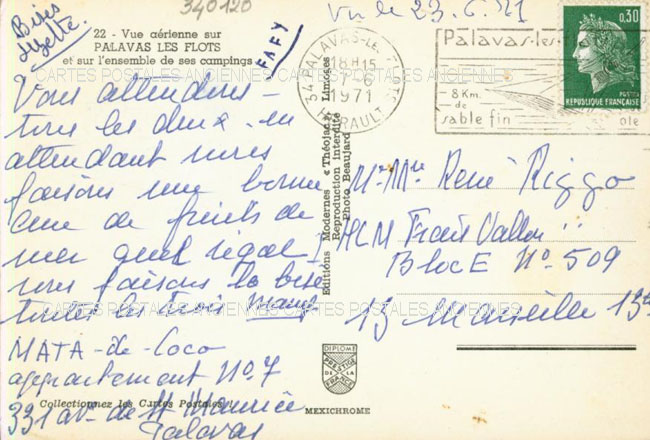 Bises
Suzette.
340120
Vu le 23.6.71
22 - Vue aérienne sur
PALAVAS LES FLOTS
et sur l'ensemble de ses campings
FAFY
34 PALAVAS-LES-FLOTS
18H15
1971
HERAULT
Palavas-les-
8 Km.
de
sable fin
0,30
POSTES
REPUBLIQUE FRANÇAISE
CARTES POSTALES ANCIENNES CARTES POSTALES ANCIENNES
Vous attendons
tous les deux. en
attendant nous
faisons une bonne
cure de fruits de
mer quel régal
nous faisons la bise
toutes les trois mamy
MATA-de-Coco
appartement N° 7
331 ave de St Maurice
Palavas
Editions Modernes « Théojac », Limoges
Reproduction interdite
Photo Beaujard
Mr Mme René Riggo
HLM Frais Vallon
Bloc E N° 509
13 Marseille 13e
CARTES POSTALES ANCIENNES CARTES POSTALES ANCIENNES
DIPLOME
PRESTIGE
DE LA
FRANCE
Collectionnez les Cartes Postales !
MEXICHROME